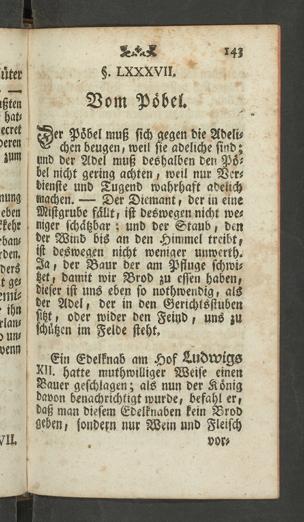 143
§. LXXXVII.
Vom Pöbel.
Der Pöbel muß sich gegen die Adeli-
chen beugen, weil sie adeliche sind;
und der Adel muß deshalben den Pö-
bel nicht gering achten, weil nur Ver-
dienste und Tugend wahrhaft adelich
machen. — Der Diemant, der in eine
Mistgrube fällt, ist deswegen nicht we-
niger schätzbar: und der Staub, den
der Wind bis an den Himmel treibt,
ist deswegen nicht weniger unwerth.
Ja, der Baur der am Pfluge schwi-
tzet, damit wir Brod zu essen haben,
dieser ist uns eben so nothwendig, als
der Adel, der in den Gerichtsstuben
sitzt, oder wider den Feind, uns zu
schützen im Felde steht.
Ein Edelknab am Hof Ludwigs
XII. hatte muthwilliger Weise einen
Bauer geschlagen; als nun der König
davon benachrichtigt wurde, befahl er,
daß man diesem Edelknaben kein Brod
geben, sondern nur Wein und Fleisch
vor-